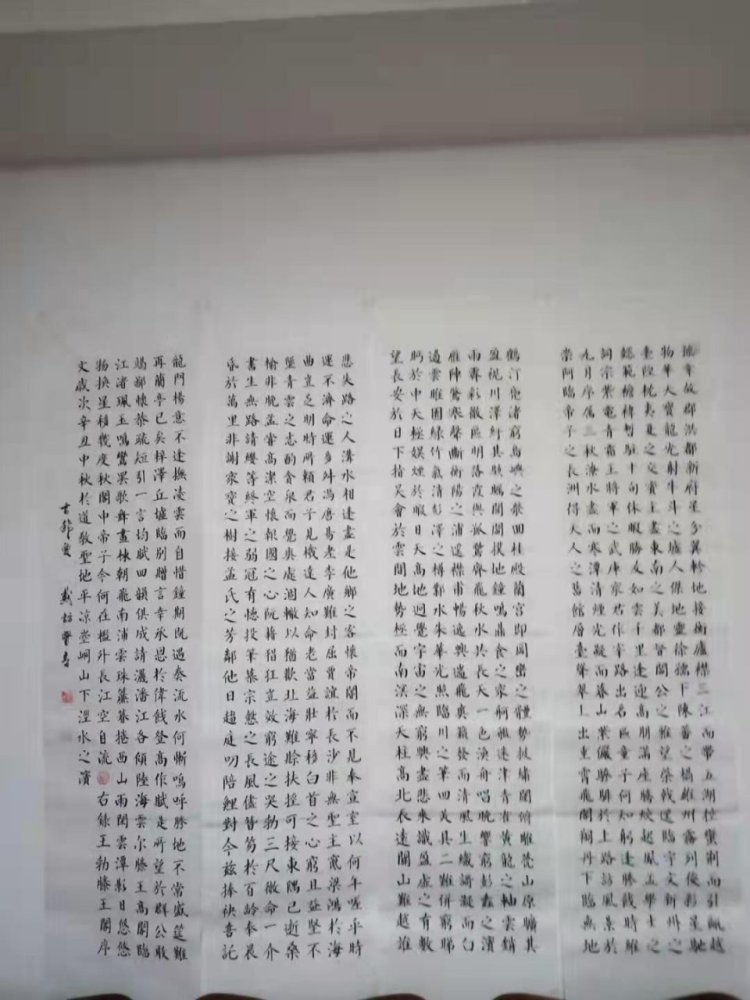 豫章故郡洪都新府星分翼軫地接衡廬襟三江而帶五湖控蠻荊而引甌越
物華天寶龍光射牛斗之墟人傑地靈徐孺下陳蕃之榻雄州霧列俊彩星馳
臺隍枕夷夏之交賓主盡東南之美都督閻公之雅望棨戟遙臨宇文新州之
懿範襜帷暫駐十旬休暇勝友如雲千里逢迎高朋滿座騰蛟起鳳孟學士之
詞宗紫電青霜王將軍之武庫家君作宰路出名區童子何知躬逢勝餞時維
九月序屬三秋潦水盡而寒潭清煙光凝而暮山紫儼驂騑於上路訪風景於
崇阿臨帝子之長洲得天人之舊館層臺聳翠上出重霄飛閣翔丹下臨無地
鶴汀鳧渚窮島嶼之縈回桂殿蘭宮即岡巒之體勢披繡闥俯雕甍山原曠其
盈視川澤紆其駭矚閭閻撲地鐘鳴鼎食之家舸艦迷津青雀黃龍之軸雲銷
雨霽彩徹區明落霞與孤鶩齊飛秋水共長天一色漁舟唱晚響窮彭蠡之濱
雁陣驚寒聲斷衡陽之浦遙襟甫暢逸興遄飛爽籟發而清風生纖歌凝而白
遏雲睢園綠竹氣清彭澤之樽鄴水朱華光照臨川之筆四美具二難併窮睇
眄於中天極娛於暇日天高地迥覺宇宙之無窮興盡悲來識盈虛之有數
望長安於日下指吳會於雲間地勢極而南溟深天柱高北辰遠關山難越誰
悲失路之人溝水相逢盡是他鄉之客懷帝閽而不見奉宣室以何年嗚乎時
運不濟命運多舛馮唐易老李廣難封屈賈誼於長沙非無聖主竄梁鴻於海
曲豈乏明時所賴君子見機達人知命老當益壯寧移白首之心窮且益堅不
墜青雲之志酌貪泉而覺爽處涸轍以猶歡北海雖賒扶搖可接東隅已逝桑
榆非晚孟嘗高潔空懷報國之心阮籍猖狂豈效窮途之哭勃三尺微命一介
書生無路請纓等終軍之弱冠有懷投筆慕宗愨之長風舍簪笏於百齡奉晨
昏於萬里非謝家寶之樹接孟氏之芳鄰他日趨庭叨陪鯉對今茲捧袂喜託
龍門楊意不逢撫凌雲而自惜鍾期既遇奏流水何慚嗚呼勝地不常盛筵難
再蘭亭已矣梓澤丘墟臨別贈言幸承恩於偉餞登高作賦是所望於群公敢
竭鄙懷恭疏短引一言均賦四韻俱成請灑潘江各傾陸海雲爾滕王高閣臨
江渚珮玉鳴鸞罷歌舞畫棟朝飛南浦雲珠簾暮捲西山雨閑雲潭影日悠悠
物換星移幾度秋閣中帝子今何在檻外長江空自流 右錄王勃滕王閣序
文歲次辛丑中秋於道教聖地平涼崆峒山下涇水之濱